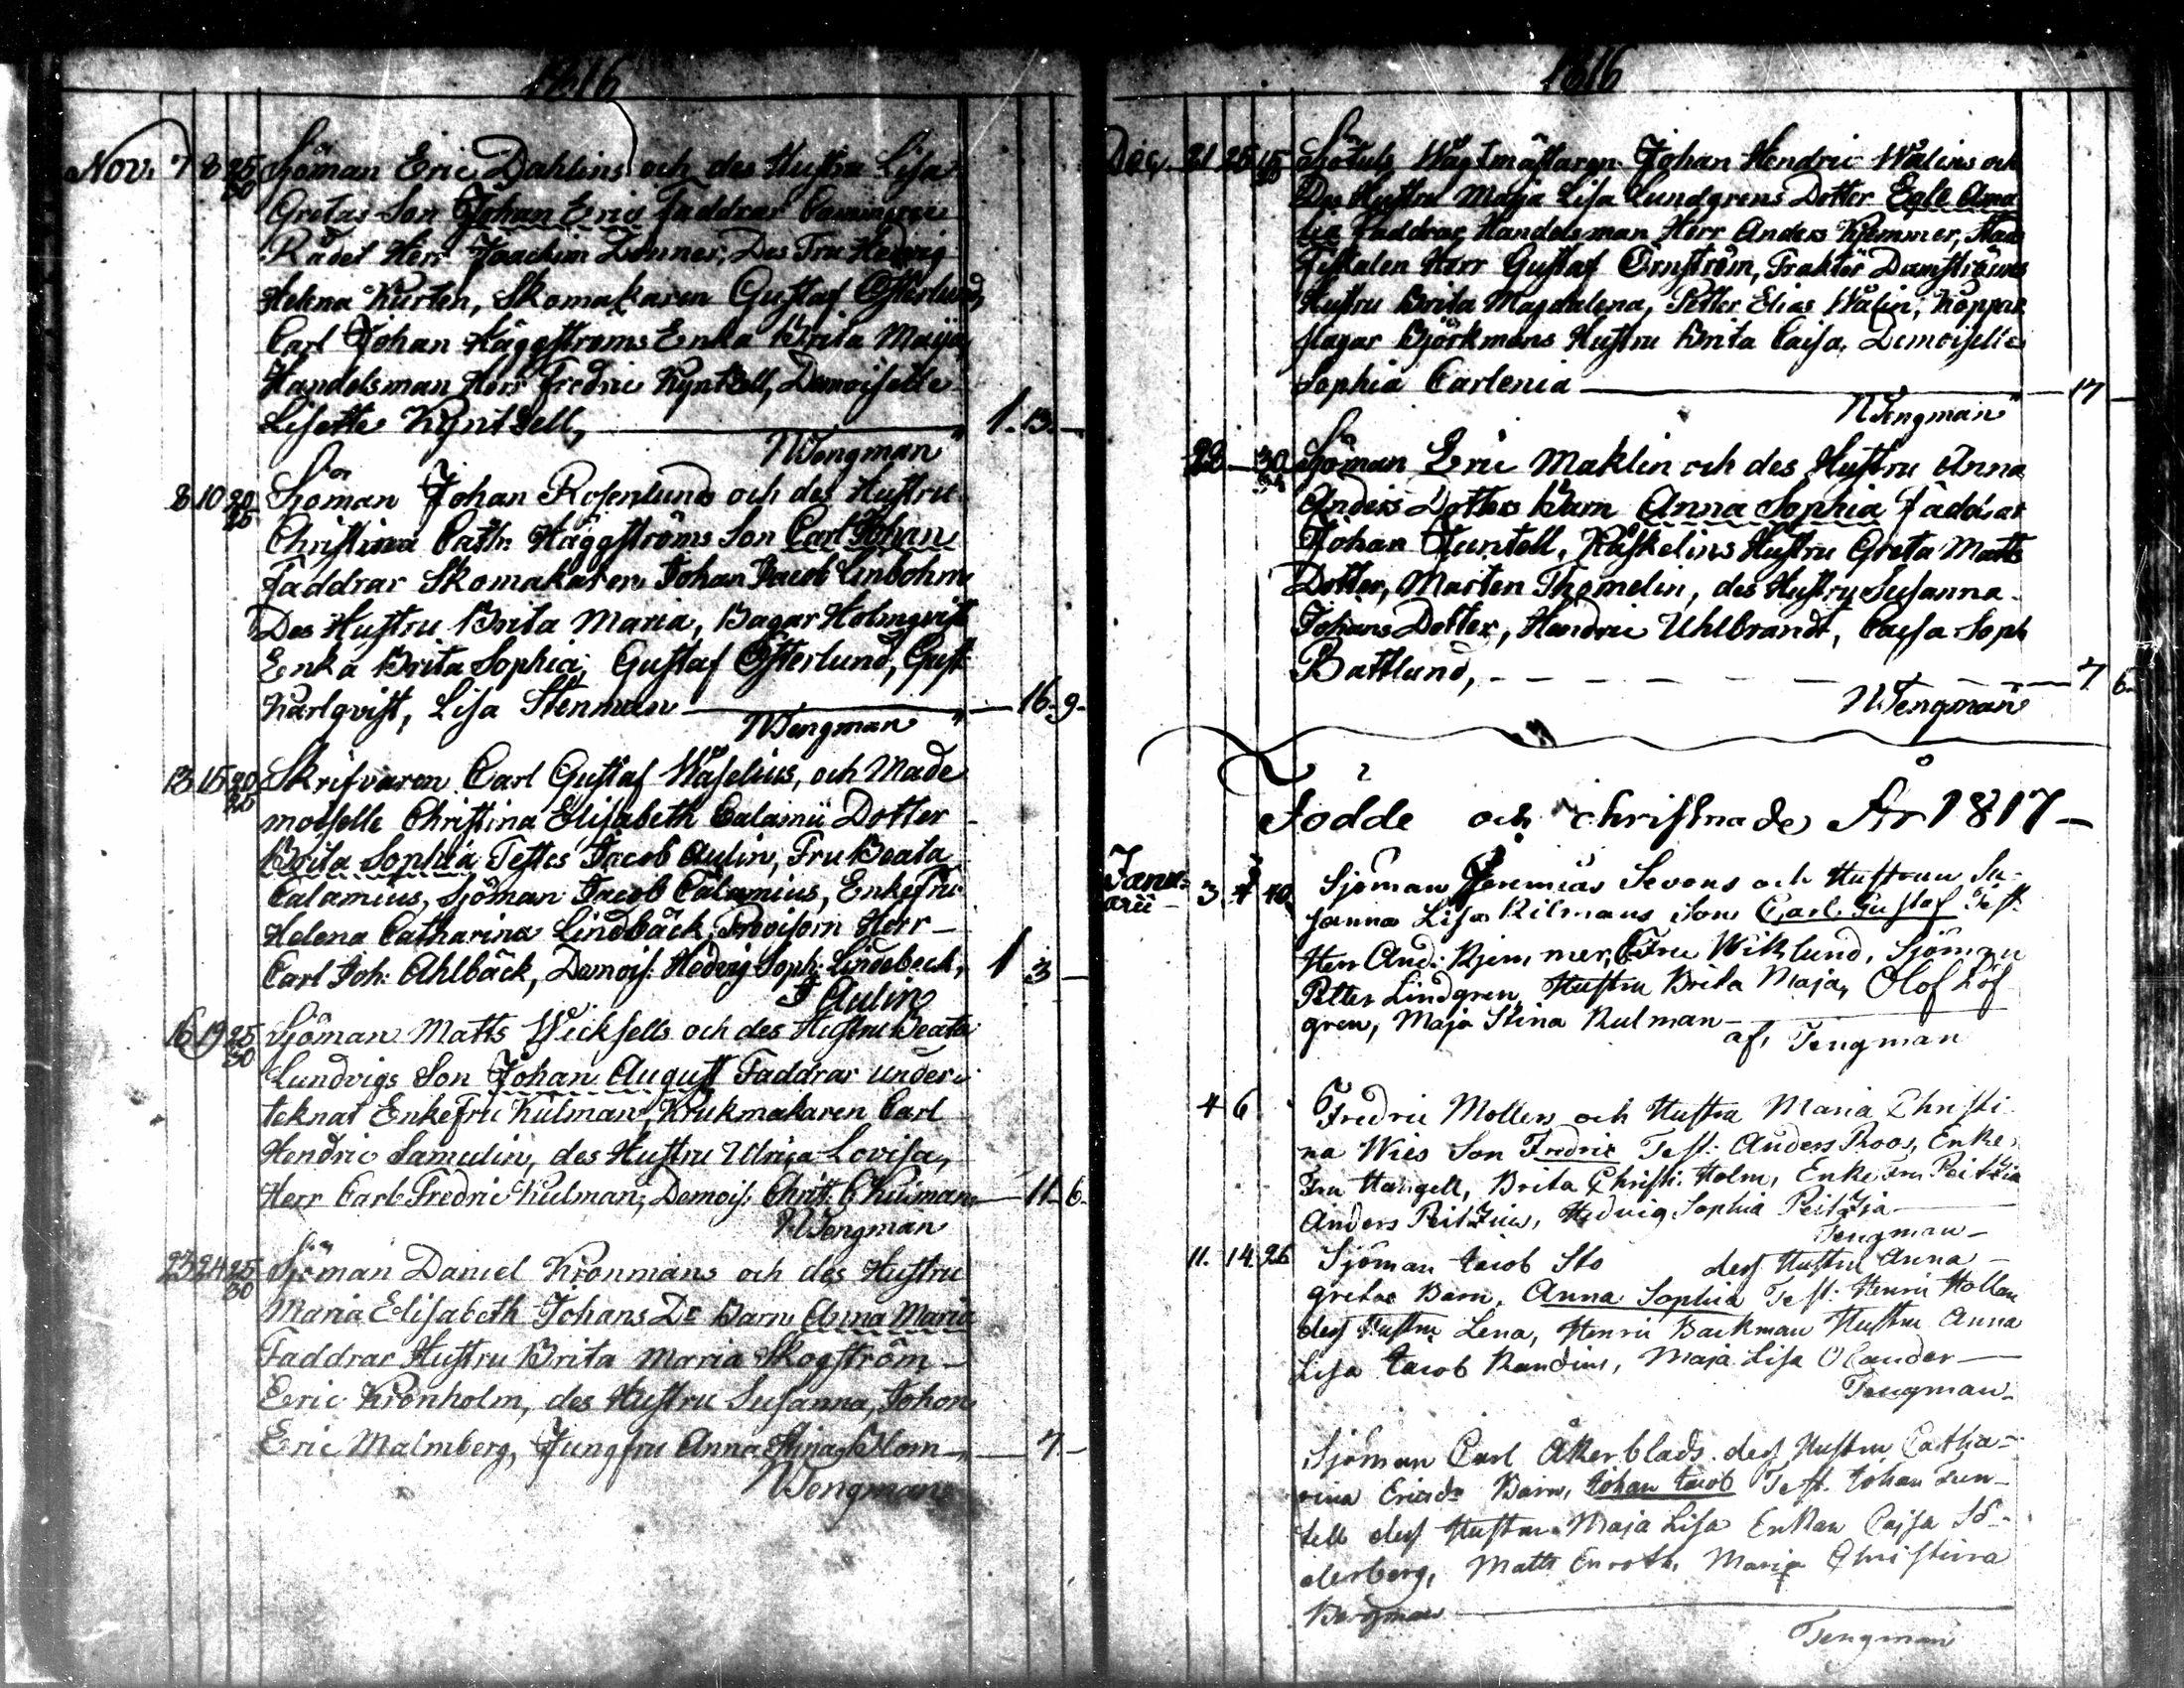 1816
Nov. 7 8 25/30 Sjöman Eric Dahlins och des Hustru Lisa
Gretas Son Johan Eric Faddrar Commerce
Rådet Herr Joachim Donner, Des Fru Hedvig
Helena Kurten, Skomakaren Gustaf Österlund,
Carl Johan Häggströms Enka Brita Maija
Handelsman Herr Fredric Kyntzell, Demoiselle
Lisette Kyntzell, 1. 13. –
N Tengman
8 10 20/25 Sjöman Johan Rosenlunds och des Hustru
Christina Cathr. Häggströms Son Carl Johan
Faddrar Skomakaren Johan Jacob Enbohm
Des Hustru Brita Maria, Bagar Holmqvist
Enka Brita Sophia, Gustaf Österlund, Gust.
Karlqvist, Lisa Stenman – 16. 9.
N Tengman
13 15 20/25 Skrifvaren Carl Gustaf Wåselius, och Made
moiselle Christina Elisabeth Calamii Dotter
Brita Sophia Testes Jacob Aulin, Fru Beata
Calamius, Sjöman Jacob Calamius, Enkefru
Helena Catharina Lindbäck, Provisorn Herr
Carl Joh: Ahlbäck, Demois: Hedvig Soph: Lindebeck, 1 3 –
J Aulin
16 19 25/30 Sjöman Matts Wicksells och des Hustru Beata
Lundvigs Son Johan August Faddrar under
teknat Enkefru Kulman, Krukmakaren Carl
Hendric Samulin, des Hustru Ulrica Lovisa,
Herr Carl Fredric Kulman, Demois: Christ: C Kulman – 11. 6.
N Tengman
23 24 25/30 Sjöman Daniel Kronmans och des Hustru
Maria Elisabeth Johans Dr Barn Anna Maria
Faddrar Hustru Brita Maria Skogström
Eric Kronholm, des Hustru Susanna, Johan
Eric Malmberg, Jungfru Anna Stina Blom – 7 –
N Tengman
1816
Dec. 21 25 Wagtmästaren Johan Hendric Wålins och
Des Hustru Maja Lisa Lundgrens Dotter Egle Ama
lia Faddrar, Handelsman Herr Anders Kjemmer, Stads
Fiskalen Herr Gustaf Örnström, Traktör Damströms
Hustru Brita Magdalena, Petter Elias Wålin, Koppar
slagar Björkmans Hustru Brita Caisa, Demoiselle
Sophia Carlenia – 17 –
N Tengman
28 – 30 Sjöman Eric Maklin och des Hustru Anna
Anders Dotters Barn Anna Sophia Faddrar
Johan Juntell, Kåskelins Hustru Greta Matts
Dotter, Marten Thomelin, des Hustru Susanna
Johans Dotter, Hendric Uhlbrandt, Caisa Soph
Battlund, – 7 6.
N Tengman
Födde och Christnade År 1817 –
Janu-
arii 3. 4 40. Sjöman Jeremias Sevons och Hustrun Su-
sanna Lisa Kilmans Son Carl Gustaf Test.
Herr And: Kjemmer, Fru Wiklund, Sjöman
Petter Lindgren, Hustru Brita Maja, Olof Löf
gren, Maja Stina Kulman
af, Tengman
4 6 Fredric Mollers och Hustru Maria Christi
na Wies Son Fredric Test: Anders Roos, Enke
Fru Hangell, Brita Christi: Holm, Enke Fru Peitzia
Anders Peitzius, Hedvig Sophia Peitzia
Tengman –
11. 14. 26 Sjöman Jacob Sto des Hustru Anna
Gretas Barn, Anna Sophia Test: Henric Hollan
des Hustru Lena, Henric Backman Hustru Anna
Lisa Jacob Randins, Maja Lisa Olander
Tengman –
Sjöman Carl Åkerblads des Hustru Catha-
rina Ericsdr Barn, Johan Jacob Test. Johan Jun-
tell des Hustru Maja Lisa Enkan Cajsa Sö-
derberg, Matts Enroth, Maria Christina
Bergman
Tengman